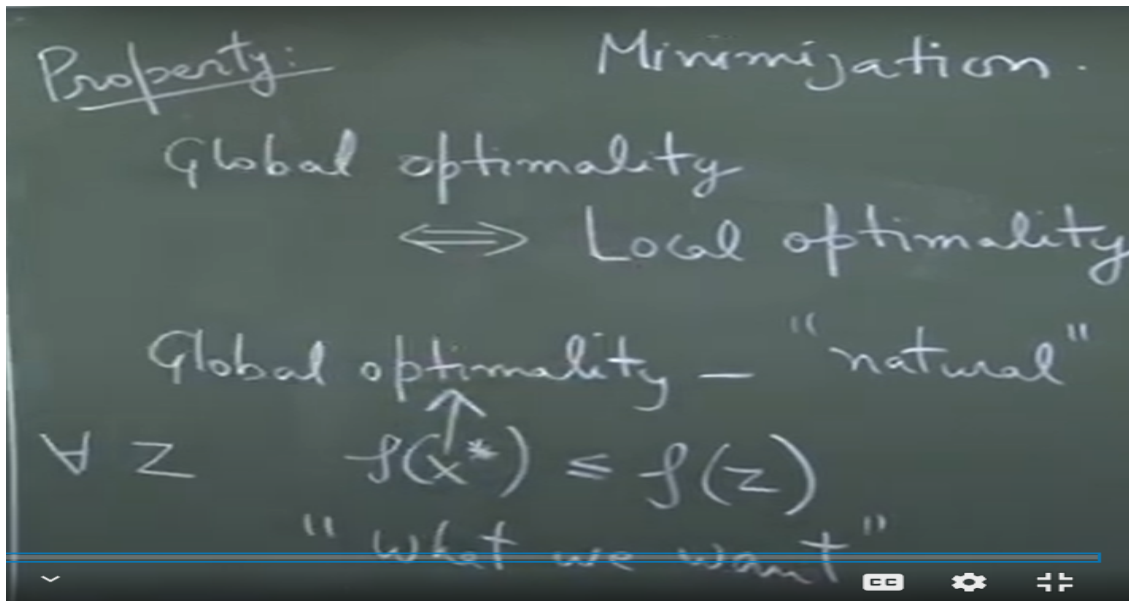 Property: Minimization.
Global optimality
⇔ Local optimality
Global optimality — "natural"
∀ z f(x*) ≤ f(z)
"what we want"
CC